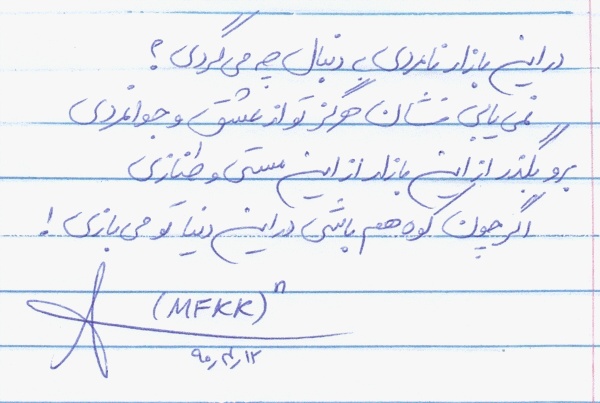 در این بازار نامردی به دنبال چه می گردی ؟
نمی یابی نشان هرگز تو از عشق و جوانمردی
برو بگذر از این بازار از این مستی و طنازی
اگر چون کوه هم باشی در این دنیا تو می بازی !
(MFKK)ⁿ